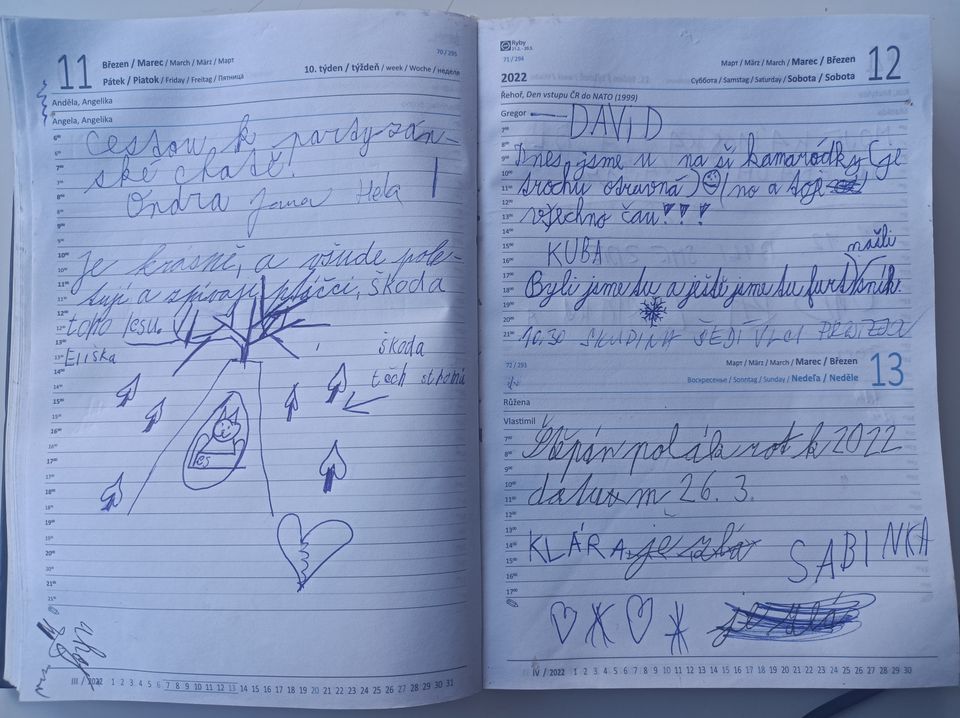 11
Březen / Marec / March / März / Март
Pátek / Piatok / Friday / Freitag / Пятница
70 / 295
10. týden / týždeň / week / Woche / неделя
Anděla, Angelika
Angela, Angelika
Cestou k partyzán-
ské chatě!
Ondra Jana Hela
je krásně, a všude pole-
tují a zpívají ptáčci, škoda
toho lesu.
Eliška
škoda
těch stromů
les
ahoj
III / 2022 1 2 3 4 5 6 7 8 9 10 11 12 13 14 15 16 17 18 19 20 21 22 23 24 25 26 27 28 29 30 31
Ryby
21.2. - 20.3.
71 / 294
Март / März / March / Marec / Březen
12
2022
Суббота / Samstag / Saturday / Sobota / Sobota
Řehoř, Den vstupu ČR do NATO (1999)
Gregor
DAVID
Dnes jsme u na ší kamarádky (je
trochu otravná) (no a to je
všechno čau!!!
KUBA
našli
Byli jsme tu a ještě jsme tu furt
10.30 SKUPINA ŠEDÍ VLCI
72 / 293
Март / März / March / Marec / Březen
13
Воскресенье / Sonntag / Sunday / Nedeľa / Neděle
Růžena
Vlastimil
Štěpán polák rok 2022
datum 26. 3.
KLÁRA je zlá
SABINKA
je zlá
IV / 2022 1 2 3 4 5 6 7 8 9 10 11 12 13 14 15 16 17 18 19 20 21 22 23 24 25 26 27 28 29 30